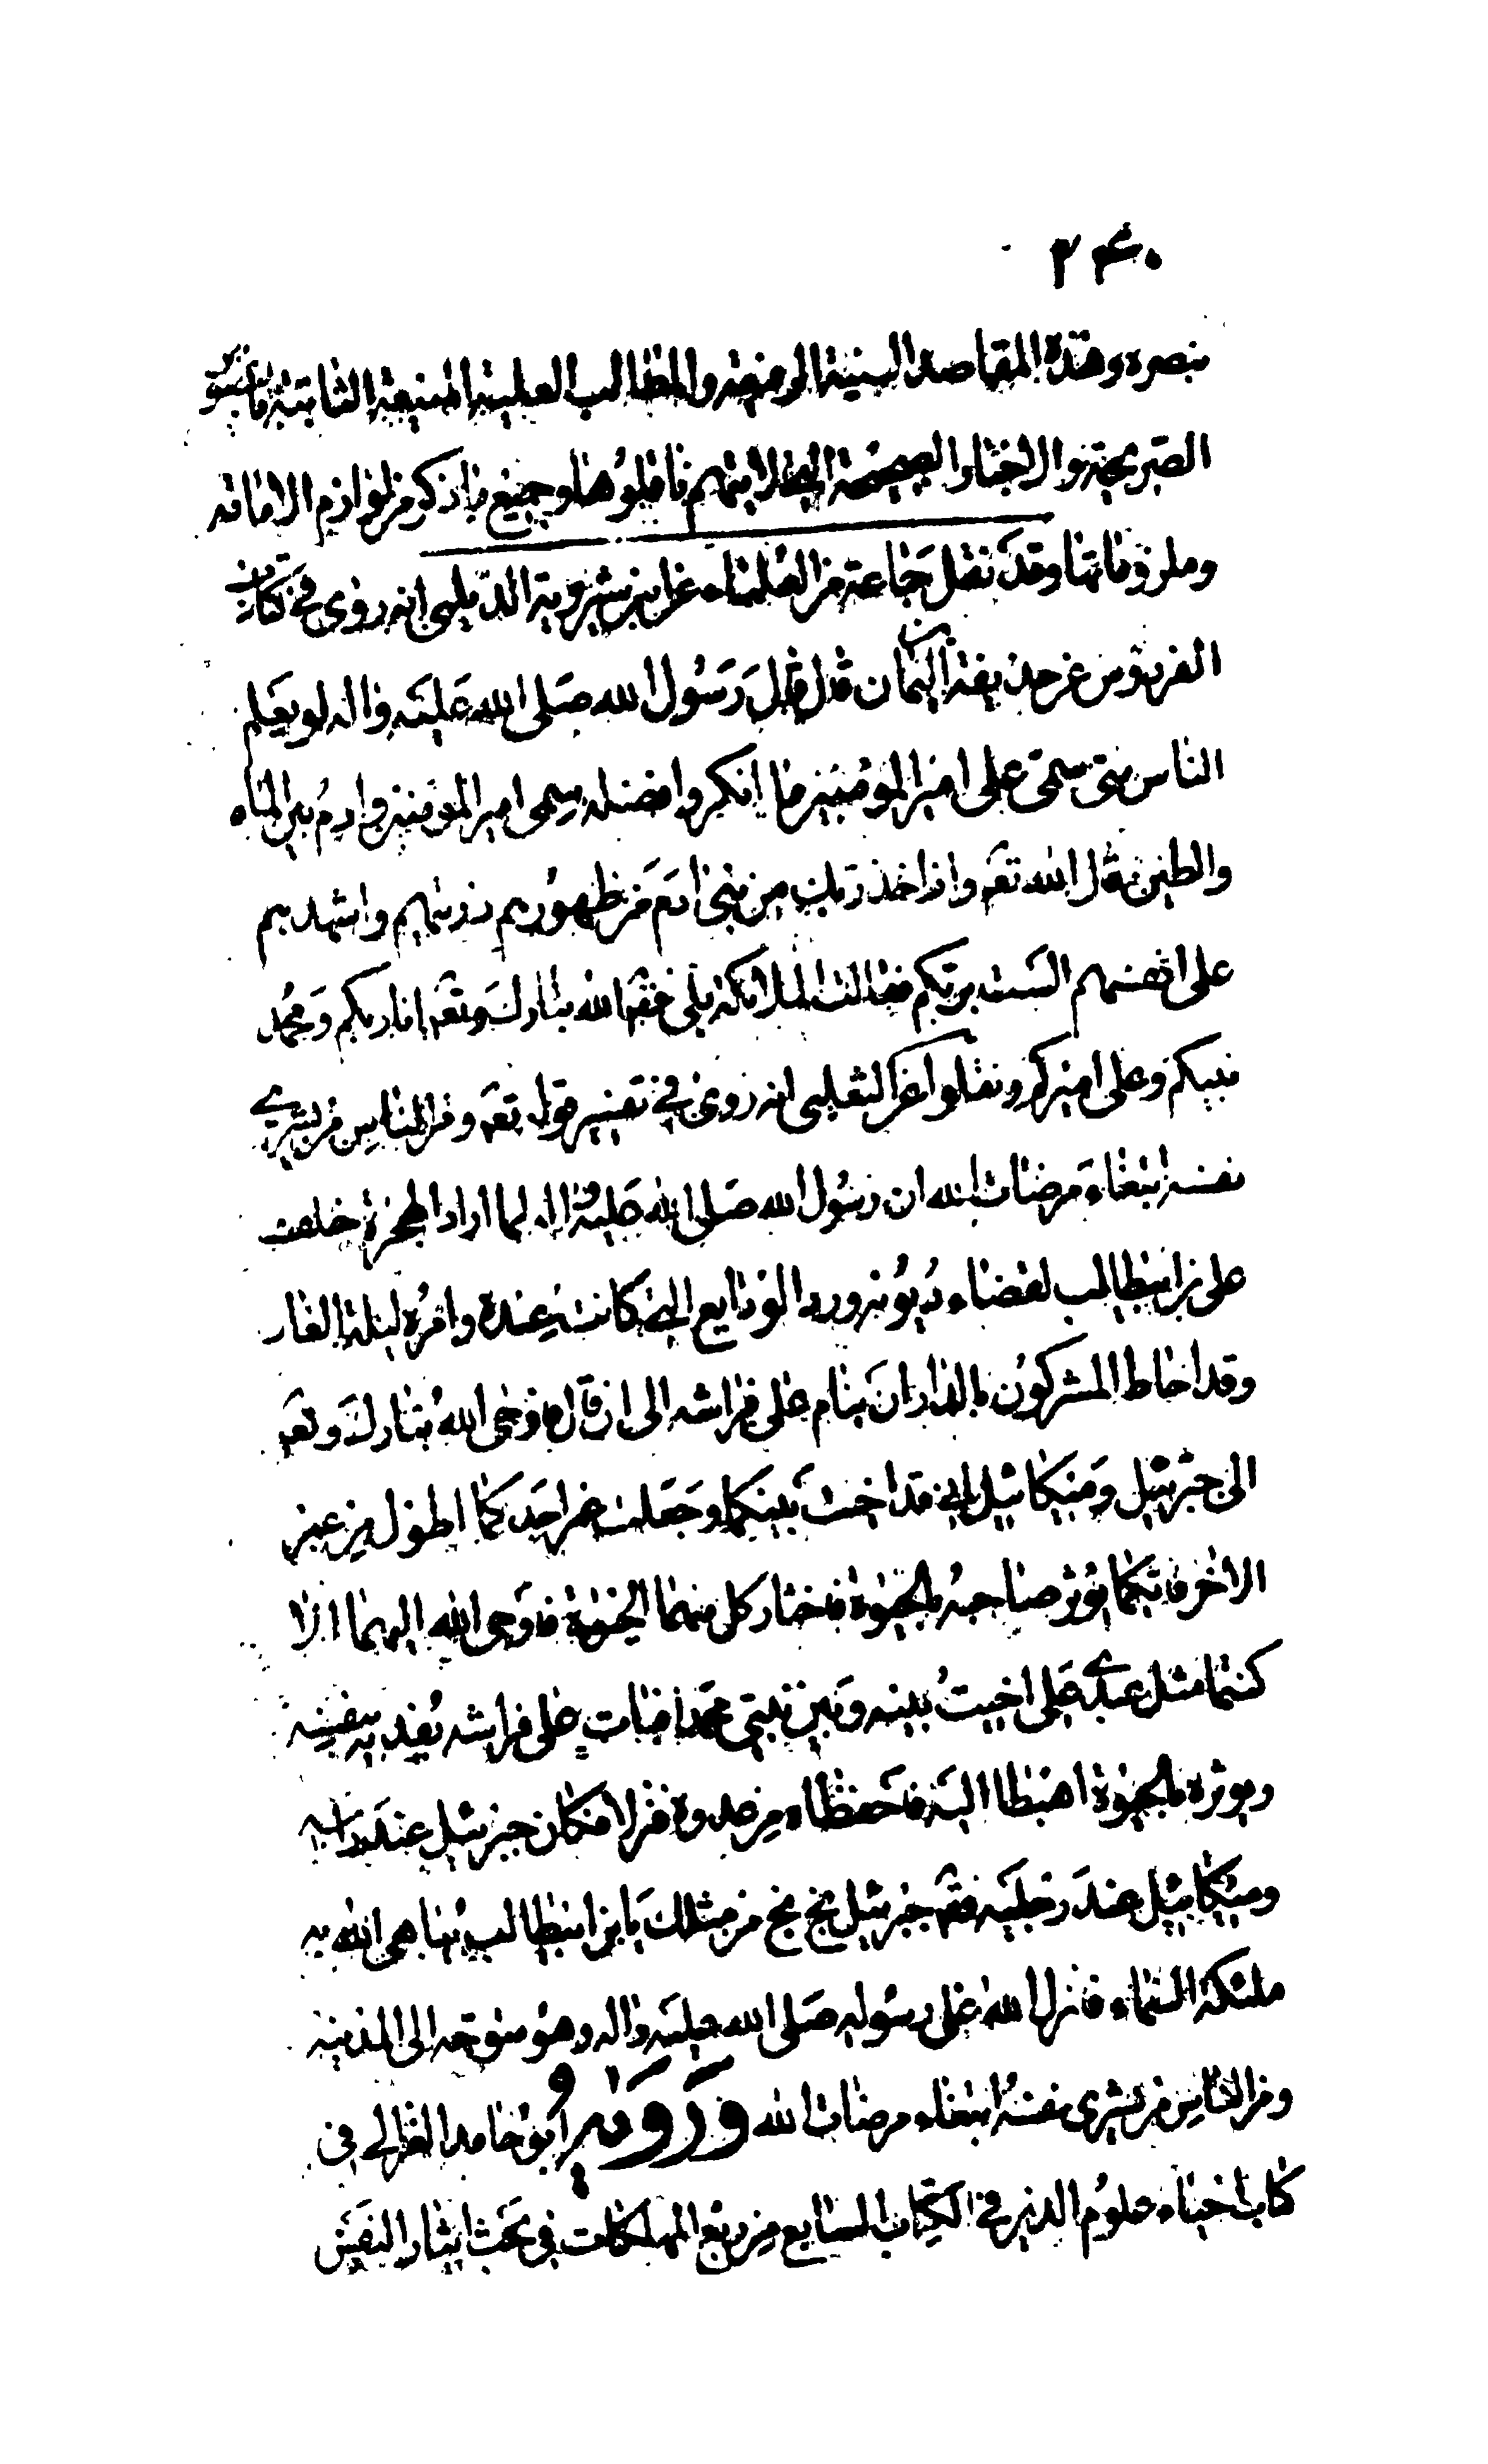 ۲۴۰
بنصره وهذه المقاصد السنية الرفيعة والمطالب العلية المنيعة الثابتة
الصريحة والاخبار الصحيحة ناقلوها وجميع ما ذكر من لوازم الامامة
وملزوماتها وقد نقل جماعة من العلماء عن ابن شيرويه الديلمي انه روى في كتاب
الفردوس عن حذيفة اليمان قال قال رسول الله صلى الله عليه واله لو يعلم
الناس متى سمي علي امير المؤمنين ما انكروا فضله سمي امير المؤمنين وادم بين الماء
والطين قال الله تعه واذ اخذ ربك من بني ادم من ظهورهم ذريتهم واشهدهم
على انفسهم الست بربكم فقالت الملائكة بلى فقه الله تبارك وتعه انا ربكم ومحمد
نبيكم وعلي اميركم ونقلوا عن الثعلبي انه روى في تفسير قوله تعه ومن الناس من يشري
نفسه ابتغاء مرضات الله ان رسول الله صلى الله عليه واله لما اراد الهجرة خلف
علي بن ابيطالب لقضاء ديونه ورد الودايع التي كانت عنده وامره ليلة الغار
وقد احاط المشركون بالدار ان ينام على فراشه الى ان قال فاوحى الله تبارك وتعه
الى جبرئيل وميكائيل اني قد اخيت بينكما وجعلت عمر احدكما اطول من عمر
الاخر فايكما يؤثر صاحبه بالحيوة فاختار كل منهما الحيوة فاوحى الله اليهما الا
كنتما مثل عبدي علي اخيت بينه وبين نبيي محمد فبات على فراشه يفديه بنفسه
ويوثره بالحيوة اهبطا اليه فاحفظاه من عدوه فنزلا فكان جبرئيل عند راسه
وميكائيل عند رجليه فقه جبرئيل بخ بخ من مثلك يا بن ابيطالب يباهي الله به
ملئكة السماء فانزل الله على رسوله صلى الله عليه واله وهو متوجه الى المدينه
ومن الناس من يشري نفسه ابتغاء مرضات الله وروى ابو حامد الغزالي في
كتاب احياء علوم الدين في الكتاب السابع من ربع المهلكات في بحث ايثار النفس